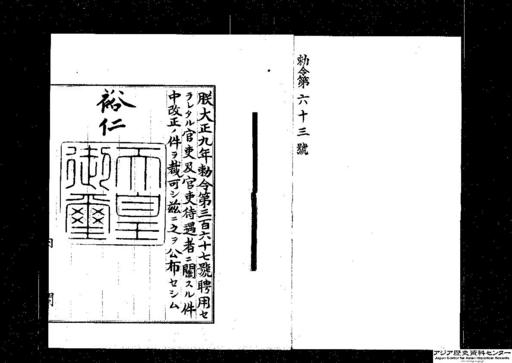 勅令第六十三號
朕大正九年勅令第三百六十七號聘用セ
ラレタル官吏及官吏待遇者ニ關スル件
中改正ノ件ヲ裁可シ茲ニ之ヲ公布セシム
裕仁
天皇
御璽
アジア歴史資料センター
Japan Center for Asian Historical Records